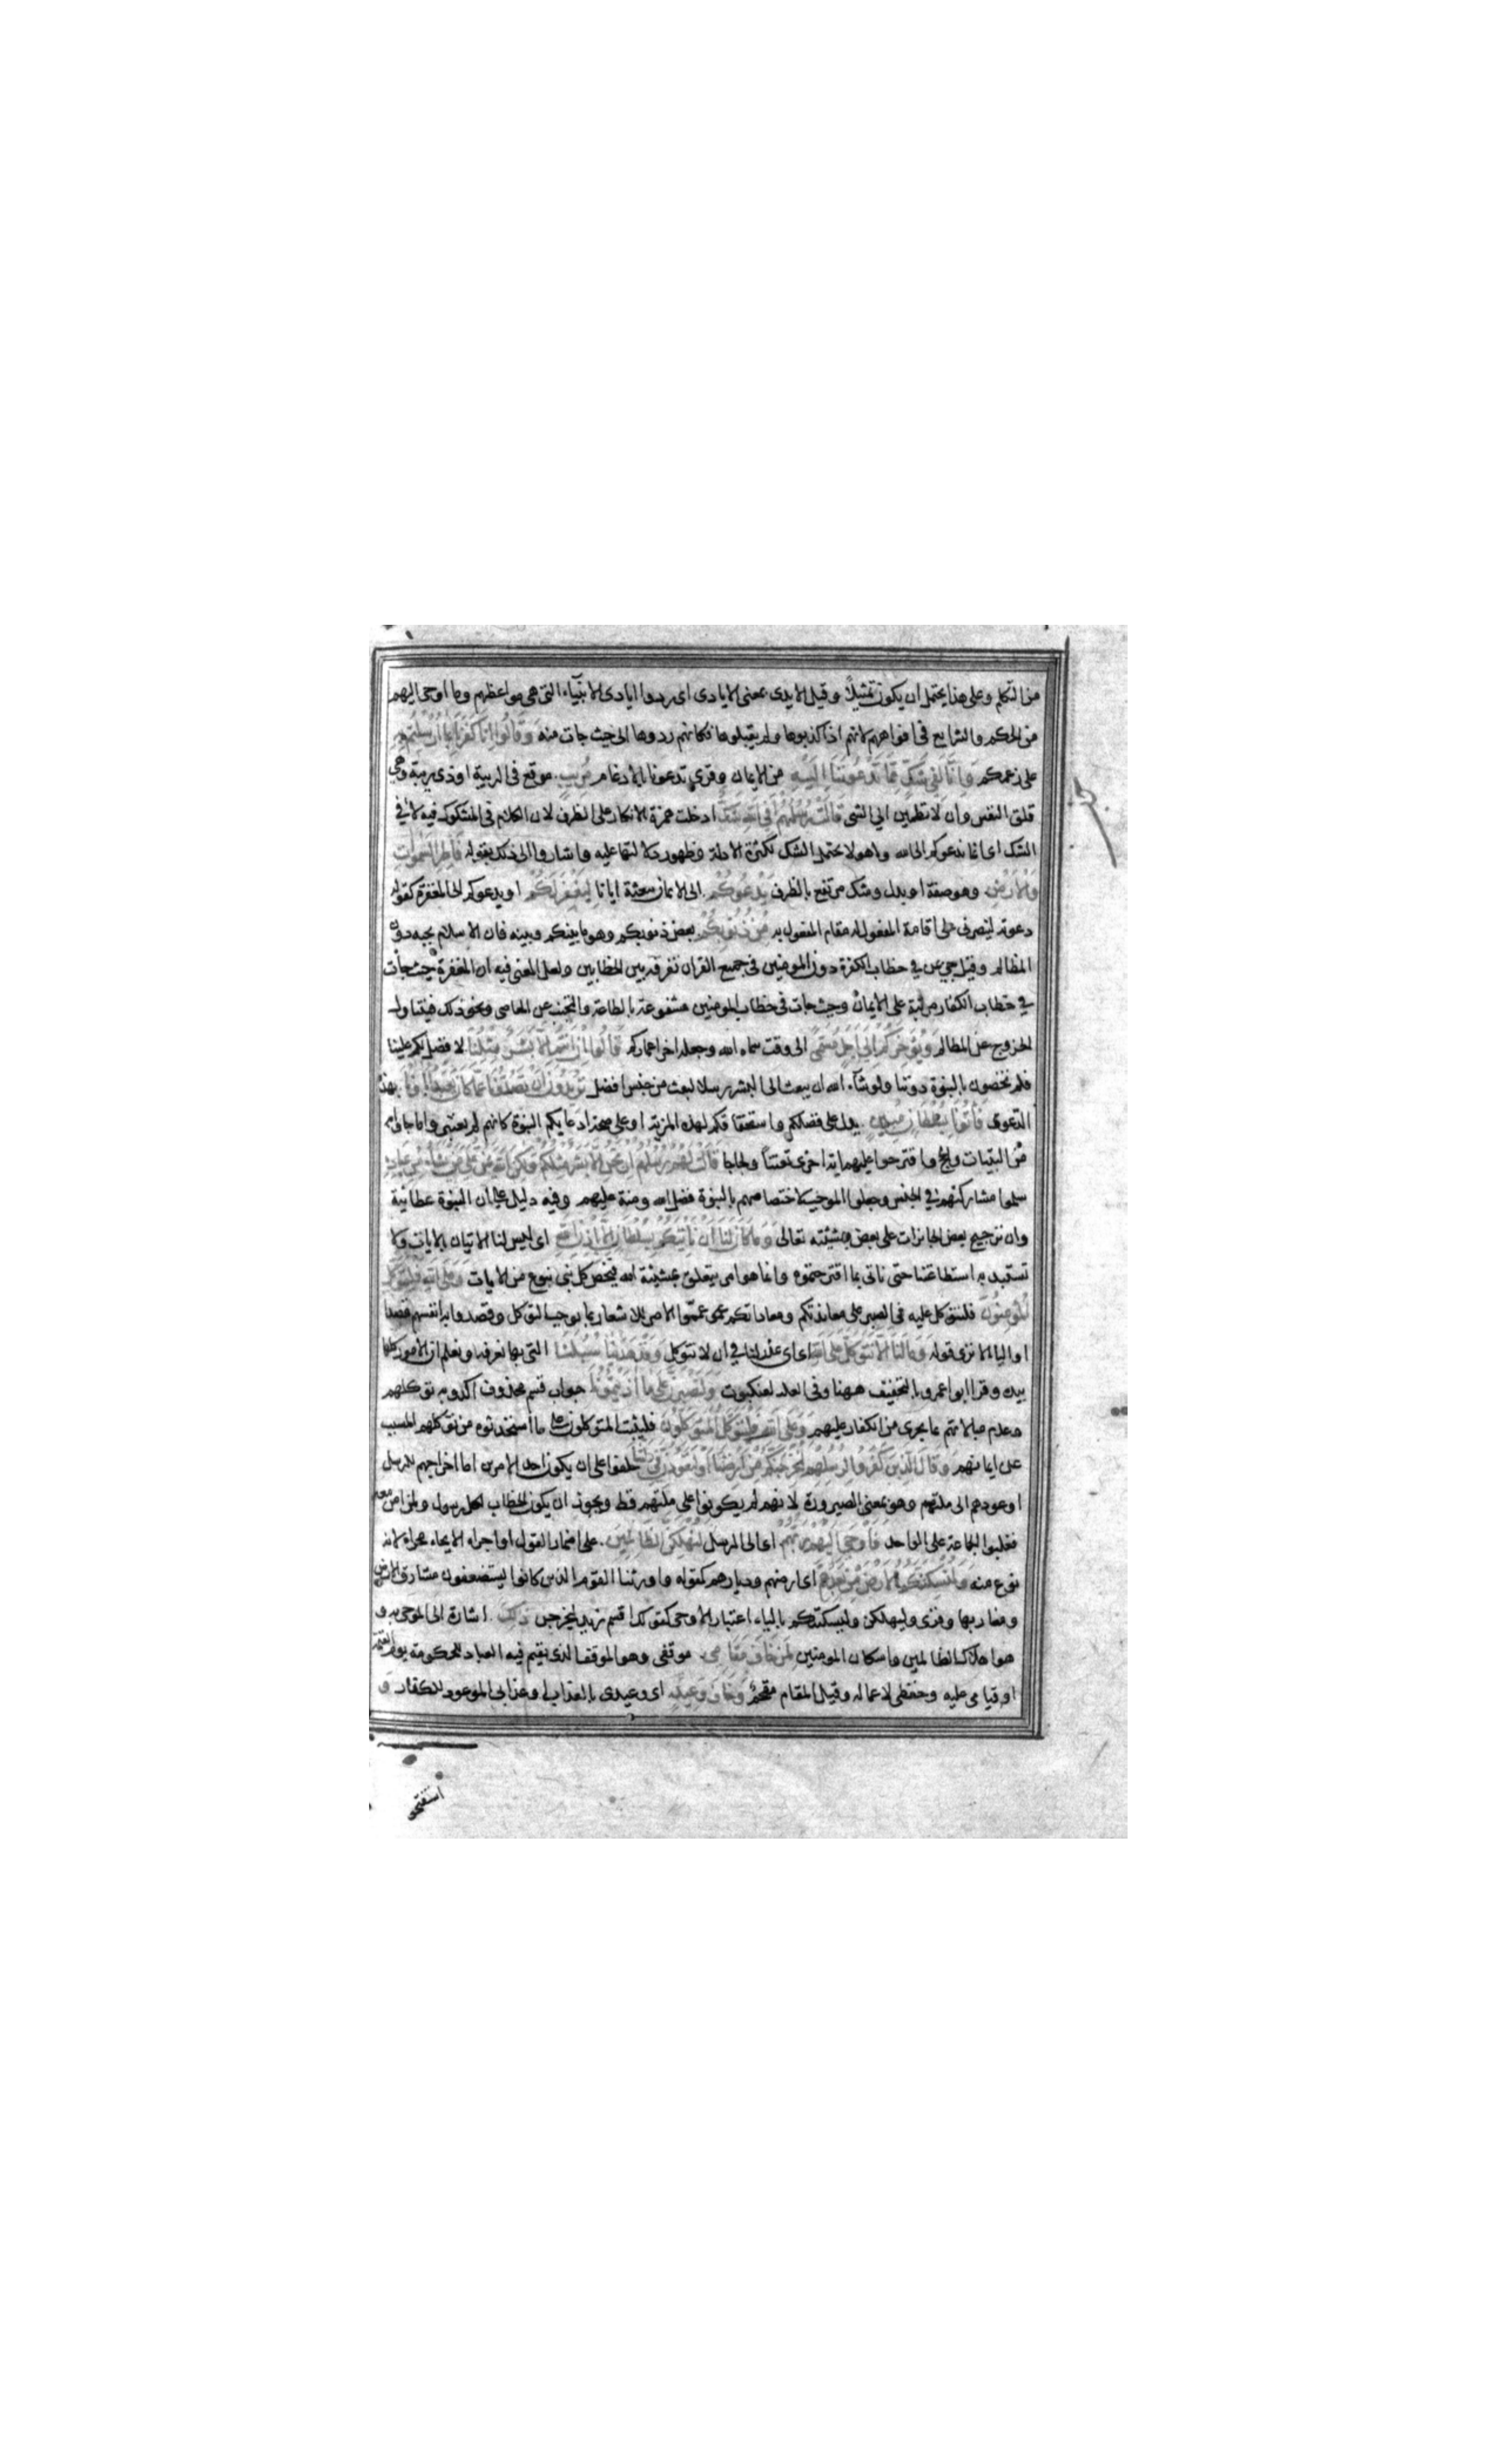 من التكلم وعلى هذا يحتمل ان يكون تمثيلاً وقيل الايدى بمعنى الايادى اى ردوا ايادى الانبياء التى هى مواعظهم وما اوحى اليهم
من الحكم والشرايع فى افواههم لانهم اذا كذبوها ولم يقبلوها فكانهم ردوها الى حيث جات منه وَقَالُوا إِنَّا كَفَرْنَا بِمَا أُرْسِلْتُمْ بِهِ
على زعمكم وَإِنَّا لَفِي شَكٍّ مِمَّا تَدْعُونَنَا إِلَيْهِ من الايمان وقرى تدعونا بالادغام مُرِيبٍ موقع فى الريبة او ذى ريبة وهى
قلق النفس وان لا تطمين الى الشى قَالَتْ رُسُلُهُمْ أَفِي اللَّهِ شَكٌّ ادخلت همزة الانكار على الظرف لان الكلام فى المشكوك فيه لا فى
الشك اى انما ندعوكم الى الله وهو لا يحتمل الشك لكثرة الادلة وظهور دلالتها عليه واشاروا الى ذلك بقوله فَاطِرِ السَّمَوَاتِ
وَالْأَرْضِ وهو صفة او بدل وشك مرتفع بالظرف يَدْعُوكُمْ الى الايمان ببعثه ايانا لِيَغْفِرَ لَكُمْ او يدعوكم الى المغفرة كقوله
دعوته لينصرنى على اقامة المفعول له مقام المفعول به مِنْ ذُنُوبِكُمْ بعض ذنوبكم وهو ما بينكم وبينه فان الاسلام يجبه دون
المظالم وقيل جيى بمن في خطاب الكفرة دون المومنين فى جميع القران تفرقه بين الخطابين ولعل المعنى فيه ان المغفرة حيث جأت
في خطاب الكفار مرتبة على الايمان وحيث جات فى خطاب المومنين مشفوعة بالطاعة والتجنب عن المعاصى ونحو ذلك فيتناول
الخروج عن المظالم وَيُؤَخِّرَكُمْ إِلَى أَجَلٍ مُسَمًّى الى وقت سماه الله وجعله اخر اعماركم قَالُوا إِنْ أَنْتُمْ إِلَّا بَشَرٌ مِثْلُنَا لا فضل لكم علينا
فلم تخصون بالنبوة دوننا ولو شآء الله ان يبعث الى البشر رسلا لبعث من جنس افضل تُرِيدُونَ أَنْ تَصُدُّونَا عَمَّا كَانَ يَعْبُدُ آبَاؤُنَا بهذه
الدعوى فَأْتُونَا بِسُلْطَانٍ مُبِينٍ يدل على فضلكم واستحقاقكم لهذه المزية او على صحة ادعايكم النبوة كانهم لم يعتبروا ما جاؤا به
من البينات والحج واقترحوا عليهم اية اخرى تعنتاً ولجاجا قَالَتْ لَهُمْ رُسُلُهُمْ إِنْ نَحْنُ إِلَّا بَشَرٌ مِثْلُكُمْ وَلَكِنَّ اللَّهَ يَمُنُّ عَلَى مَنْ يَشَاءُ مِنْ عِبَادِهِ
سلموا مشاركتهم في الجنس وجعلوا الموجب لاختصاصهم بالنبوة فضل الله ومنة عليهم وفيه دليل على ان النبوة عطائية
وان ترجيح بعض الجايزات على بعض بمشيئته تعالى وَمَا كَانَ لَنَا أَنْ نَأْتِيَكُمْ بِسُلْطَانٍ إِلَّا بِإِذْنِ اللَّهِ اى ليس لنا الاتيان بالايات ولا
تستبد به استطاعتنا حتى ناتى بما اقترحتموه وانما هو امر يتعلق بمشيئة الله فيخص كل نبى بنوع من الايات وَعَلَى اللَّهِ فَلْيَتَوَكَّلِ
الْمُؤْمِنُونَ فلنتوكل عليه فى الصبر على معاندتكم ومعاداتكم عمموا الامر للاشعار بما يوجب التوكل وقصدوا به انفسهم قصدا
اوليا الا ترى قوله وَمَا لَنَا أَلَّا نَتَوَكَّلَ عَلَى اللَّهِ اى اى عذر لنا في ان لا نتوكل وَقَدْ هَدَانَا سُبُلَنَا التى بها نعرفه ونعلم ان الامور كلها
بيده وقرا ابو عمرو بالتخفيف ههنا وفى العنكبوت وَلَنَصْبِرَنَّ عَلَى مَا آذَيْتُمُونَا جواب قسم محذوف اكدوا به توكلهم
وعدم مبالاتهم بما يجرى من الكفار عليهم وَعَلَى اللَّهِ فَلْيَتَوَكَّلِ الْمُتَوَكِّلُونَ فليثبت المتوكلون على ما استحدثوه من توكلهم المسبب
عن ايمانهم وَقَالَ الَّذِينَ كَفَرُوا لِرُسُلِهِمْ لَنُخْرِجَنَّكُمْ مِنْ أَرْضِنَا أَوْ لَتَعُودُنَّ فِي مِلَّتِنَا حلفوا على ان يكون احد الامرين اما اخراجهم للرسل
او عودهم الى ملتهم وهو بمعنى الصيرورة لانهم لم يكونوا على ملتهم قط ويجوز ان يكون الخطاب لكل رسول ولمن امن معه
فغلبوا الجماعة على الواحد فَأَوْحَى إِلَيْهِمْ رَبُّهُمْ اى الى الرسل لَنُهْلِكَنَّ الظَّالِمِينَ على اضمار القول او اجراء الايحاء مجراه لانه
نوع منه وَلَنُسْكِنَنَّكُمُ الْأَرْضَ مِنْ بَعْدِهِمْ اى ارضهم وديارهم كقوله واورثنا القوم الذين كانوا يستضعفون مشارق الارض
ومغاربها وقرى وليهلكن وليسكننكم بالياء اعتبار الاوحى كقولك اقسم زيد ليخرجن ذَلِكَ اشارة الى الموحى به و
هو اهلاك الظالمين واسكان المومنين لِمَنْ خَافَ مَقَامِي موقفى وهو الموقف الذى يقيم فيه العباد للحكومة يوم القيمة
او قيامى عليه وحفظى لاعماله وقيل المقام مقحم وَخَافَ وَعِيدِ اى وعيدى بالعذاب او عذابى الموعود للكفار و
استفتحو